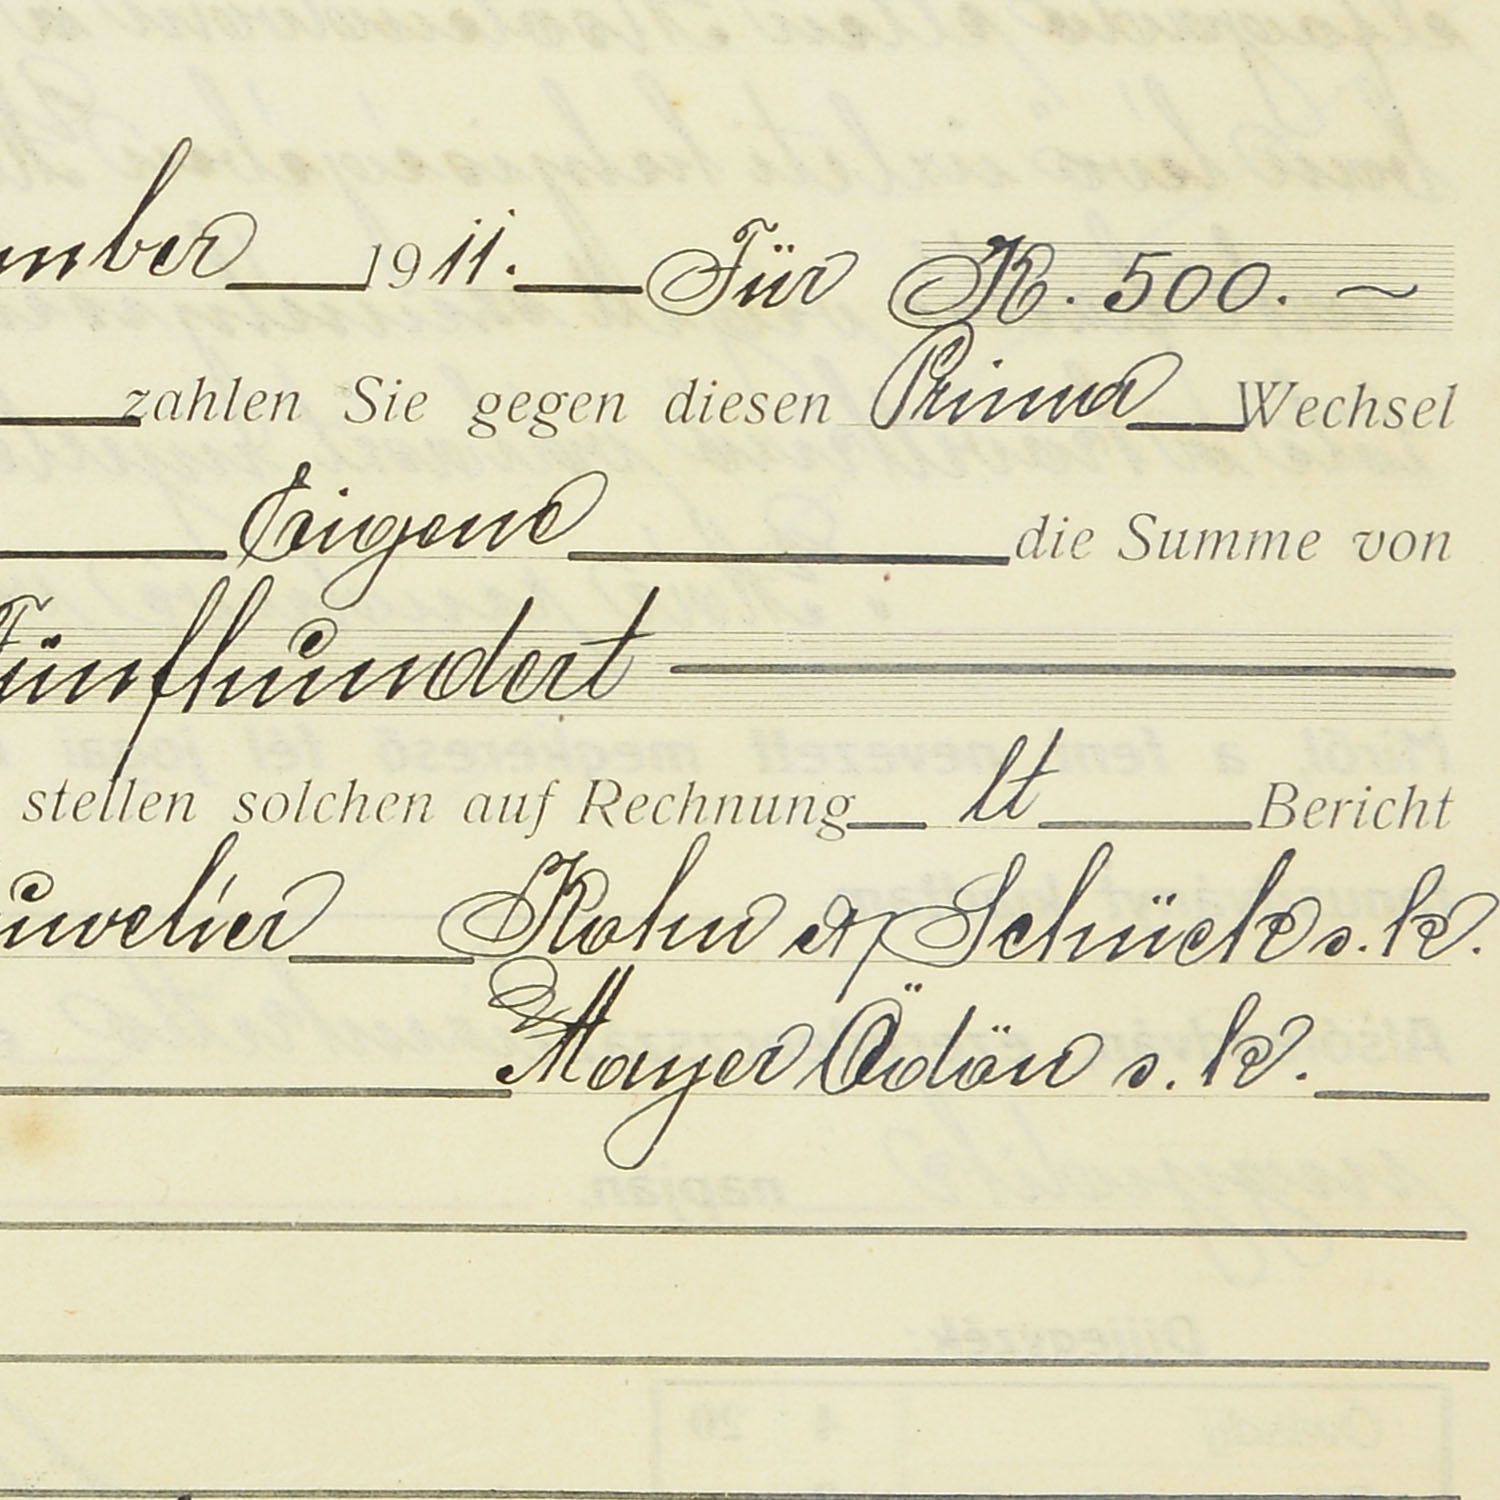 mber 1911. Für K. 500. ~
zahlen Sie gegen diesen Prima Wechsel
Eigene die Summe von
Fünfhundert
stellen solchen auf Rechnung lt Bericht
uwelier Kohn & Schück s. k.
Mayer Ödön s. k.